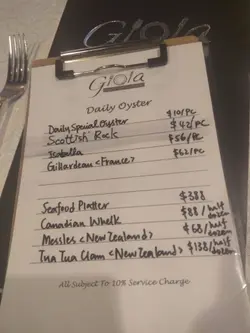 Gioia
Gioia
Daily Oyster
Daily Special Oyster $10/PC
Scottish Rock $42/PC
Isabella $56/PC
Gillardeau <France> $62/PC
Seafood Platter $388
Canadian Whelk $88/half dozen
Mossles <New Zealand> $68/half dozen
Tua Tua Clam <New Zealand> $138/half dozen
All Subject To 10% Service Charge